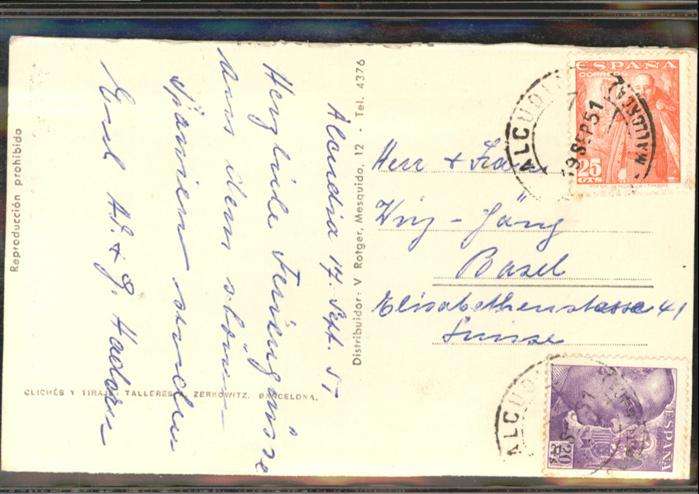 Alcudia 17. Sept. 51
Herzliche Feriengrüsse
aus dem schönen
Spanien senden
A. & G. Hadorn
Reproducción prohibida
CLICHÉS Y TIRAJE TALLERES ZERKOWITZ. BARCELONA.
Distribuidor: V Rotger, Mesquida, 12 - Tel. 4376
Herr & Frau
Jäng
Basel
Elisabethenstrasse 41
Suisse
ESPAÑA
CORREOS
25
CTS
ALCUDIA
19 SEP 51
MALLORCA
ALCUDIA
ESPAÑA
20